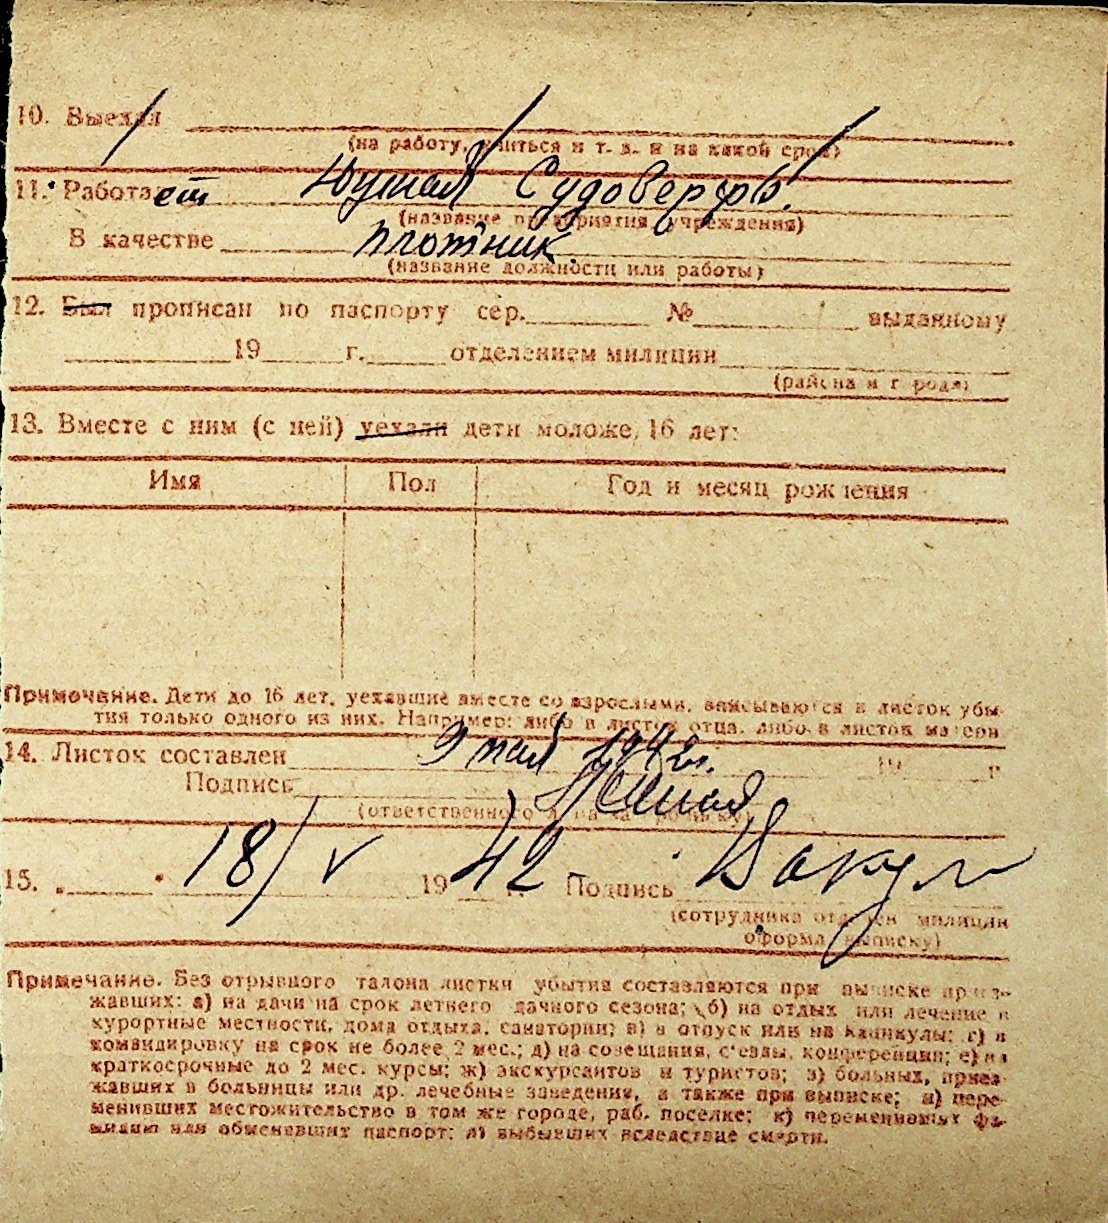 10. Выехал
(на работу, учиться и т. д. и на какой срок)
11. Работает Южная Судоверфь.
(название предприятия учреждения)
В качестве плотник.
(название должности или работы)
12. Был прописан по паспорту сер. № выданному
19 г. отделением милиции
(района и города)
13. Вместе с ним (с ней) уехали дети моложе 16 лет:
Имя Пол Год и месяц рождения
Примечание. Дети до 16 лет, уехавшие вместе со взрослыми, вписываются в листок убы-
тия только одного из них. Например: либо в листок отца, либо в листок матери
14. Листок составлен 9 мая 1942г. 19 г
Подпись
(ответственного лица за прописку)
15. „ “ 18/V 1942 г. Подпись
(сотрудника отделен милиции
оформл. выписку)
Примечание. Без отрывного талона листки убытия составляются при выписке приез-
жавших: а) на дачи на срок летнего дачного сезона; б) на отдых или лечение в
курортные местности, дома отдыха, санатории; в) в отпуск или на каникулы; г) в
командировку на срок не более 2 мес.; д) на совещания, с'езды, конференции; е) на
краткосрочные до 2 мес. курсы; ж) экскурсантов и туристов; з) больных, приез-
жавших в больницы или др. лечебные заведения, а также при выписке; и) пере-
менивших местожительство в том же городе, раб. поселке; к) переменивших фа-
милию или обменявших паспорт; л) выбывших вследствие смерти.